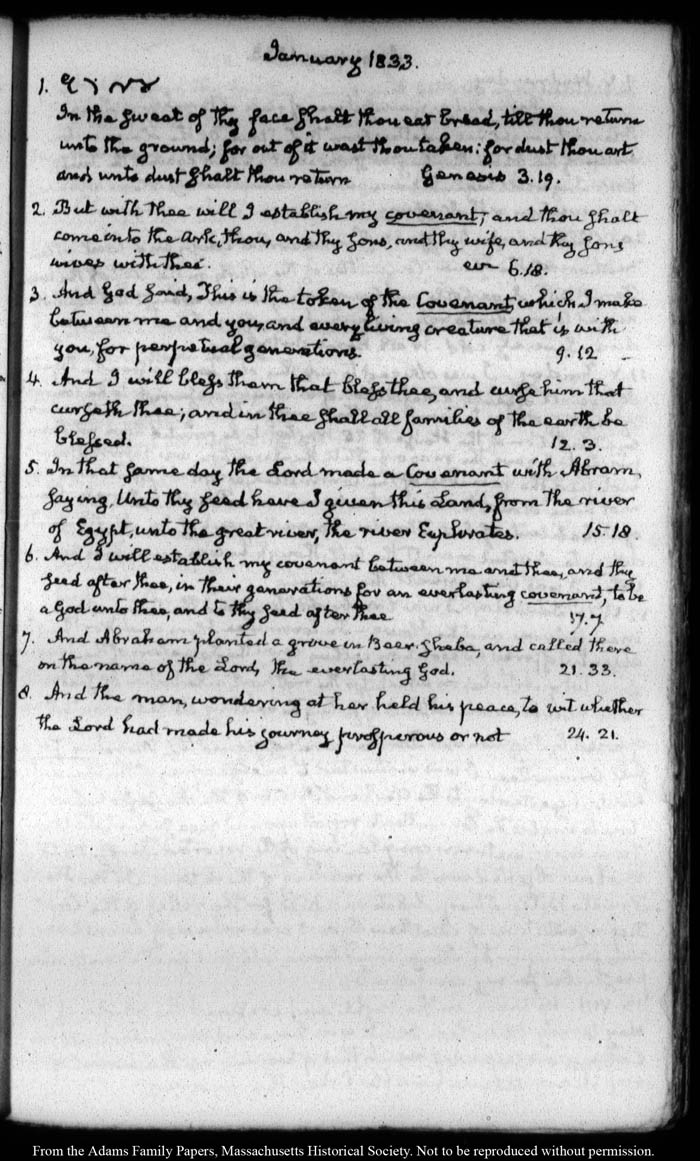 January 1833.
1.
In the sweat of thy face shalt thou eat bread, till thou return
unto the ground; for out of it wast thou taken: for dust thou art
and unto dust shalt thou return Genesis 3.19.
2. But with thee will I establish my covenant; and thou shalt
come into the Ark, thou, and thy sons, and thy wife, and thy sons
wives with thee. 6.18.
3. And God said, This is the token of the Covenant, which I make
between me and you, and every living creature that is with
you, for perpetual generations. 9.12
4. And I will bless them that bless thee, and curse him that
curseth thee; and in thee shall all families of the earth be
blessed. 12.3.
5. In that same day the Lord made a Covenant with Abram,
saying, Unto thy seed have I given this Land, from the river
of Egypt, unto the great river, the river Euphrates. 15.18.
6. And I will establish my covenant between me and thee, and thy
seed after thee, in their generations for an everlasting covenant, to be
a God unto thee, and to thy seed after thee 17.7
7. And Abraham planted a grove in Beer-sheba, and called there
on the name of the Lord, the everlasting God. 21.33.
8. And the man, wondering at her held his peace, to wit whether
the Lord had made his journey prosperous or not 24.21.
From the Adams Family Papers, Massachusetts Historical Society. Not to be reproduced without permission.